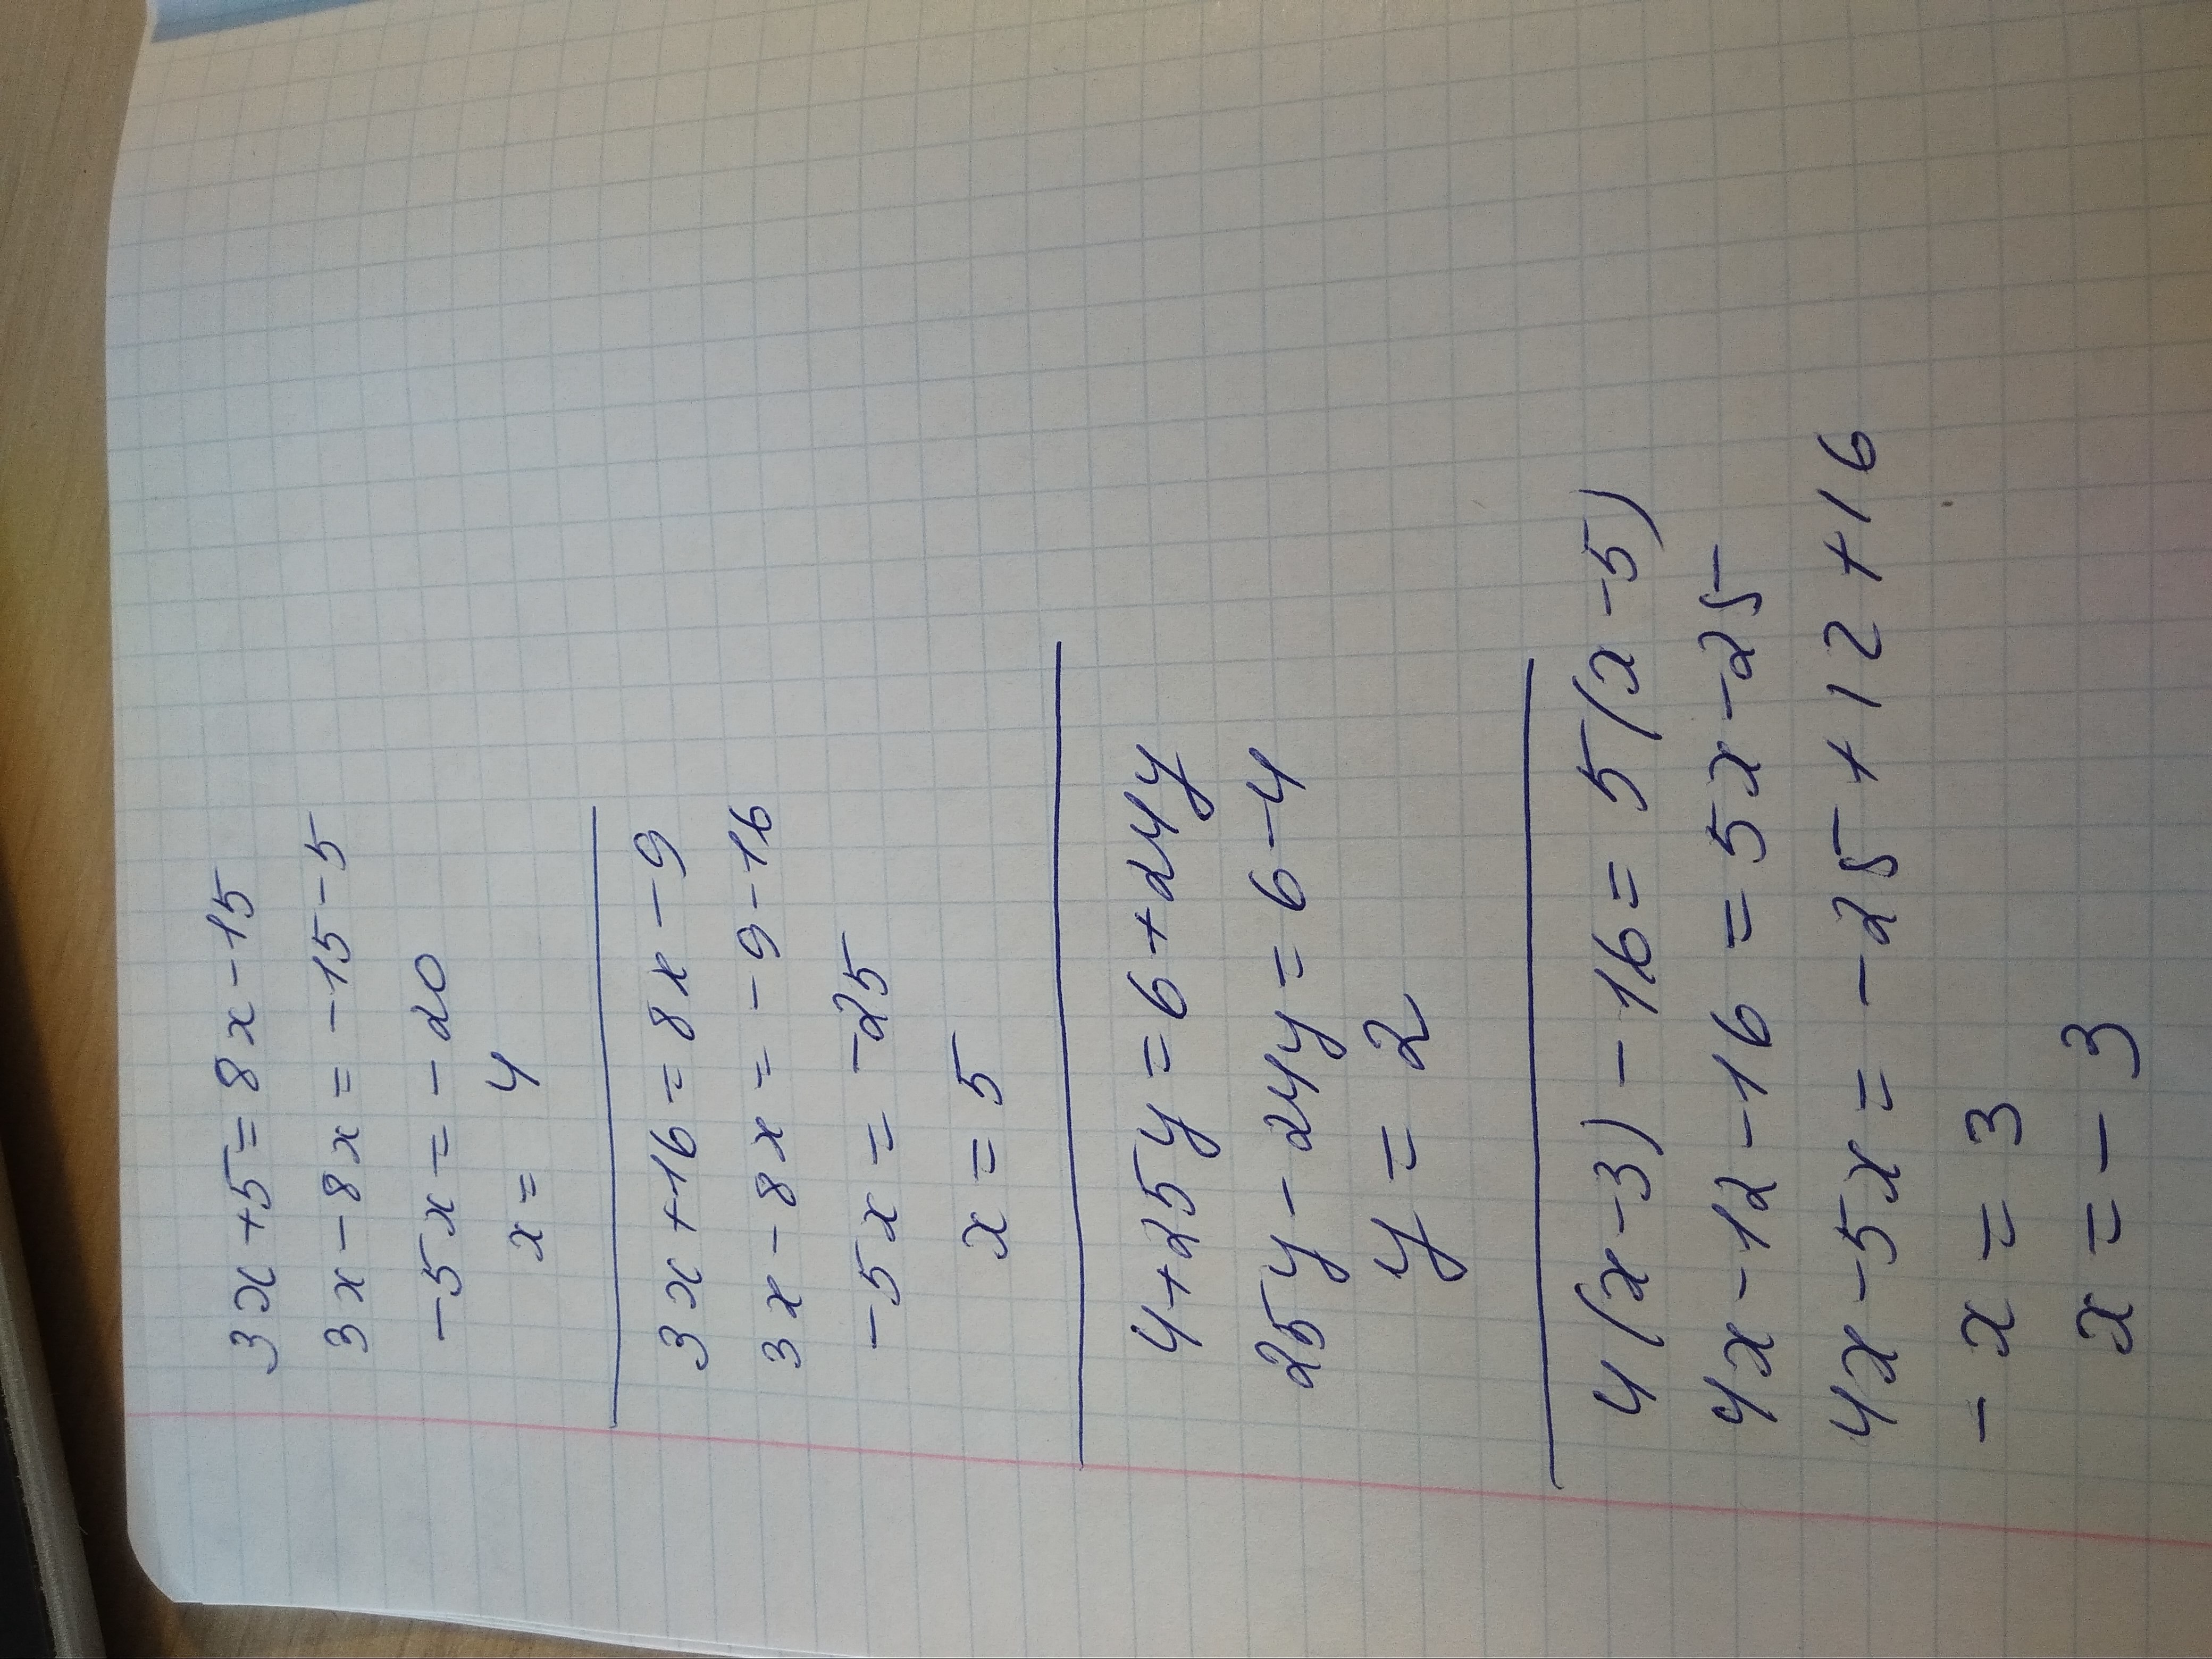 3x+5=8x-15
3x-8x=-15-5
-5x=-20
x=4
3x+16=8x-9
3x-8x=-9-16
-5x=-25
x=5
4+25y=6+24y
25y-24y=6-4
y=2
4(x-3)-16=5(x-5)
4x-12-16=5x-25
4x-5x=-25+12+16
-x=3
x=-3